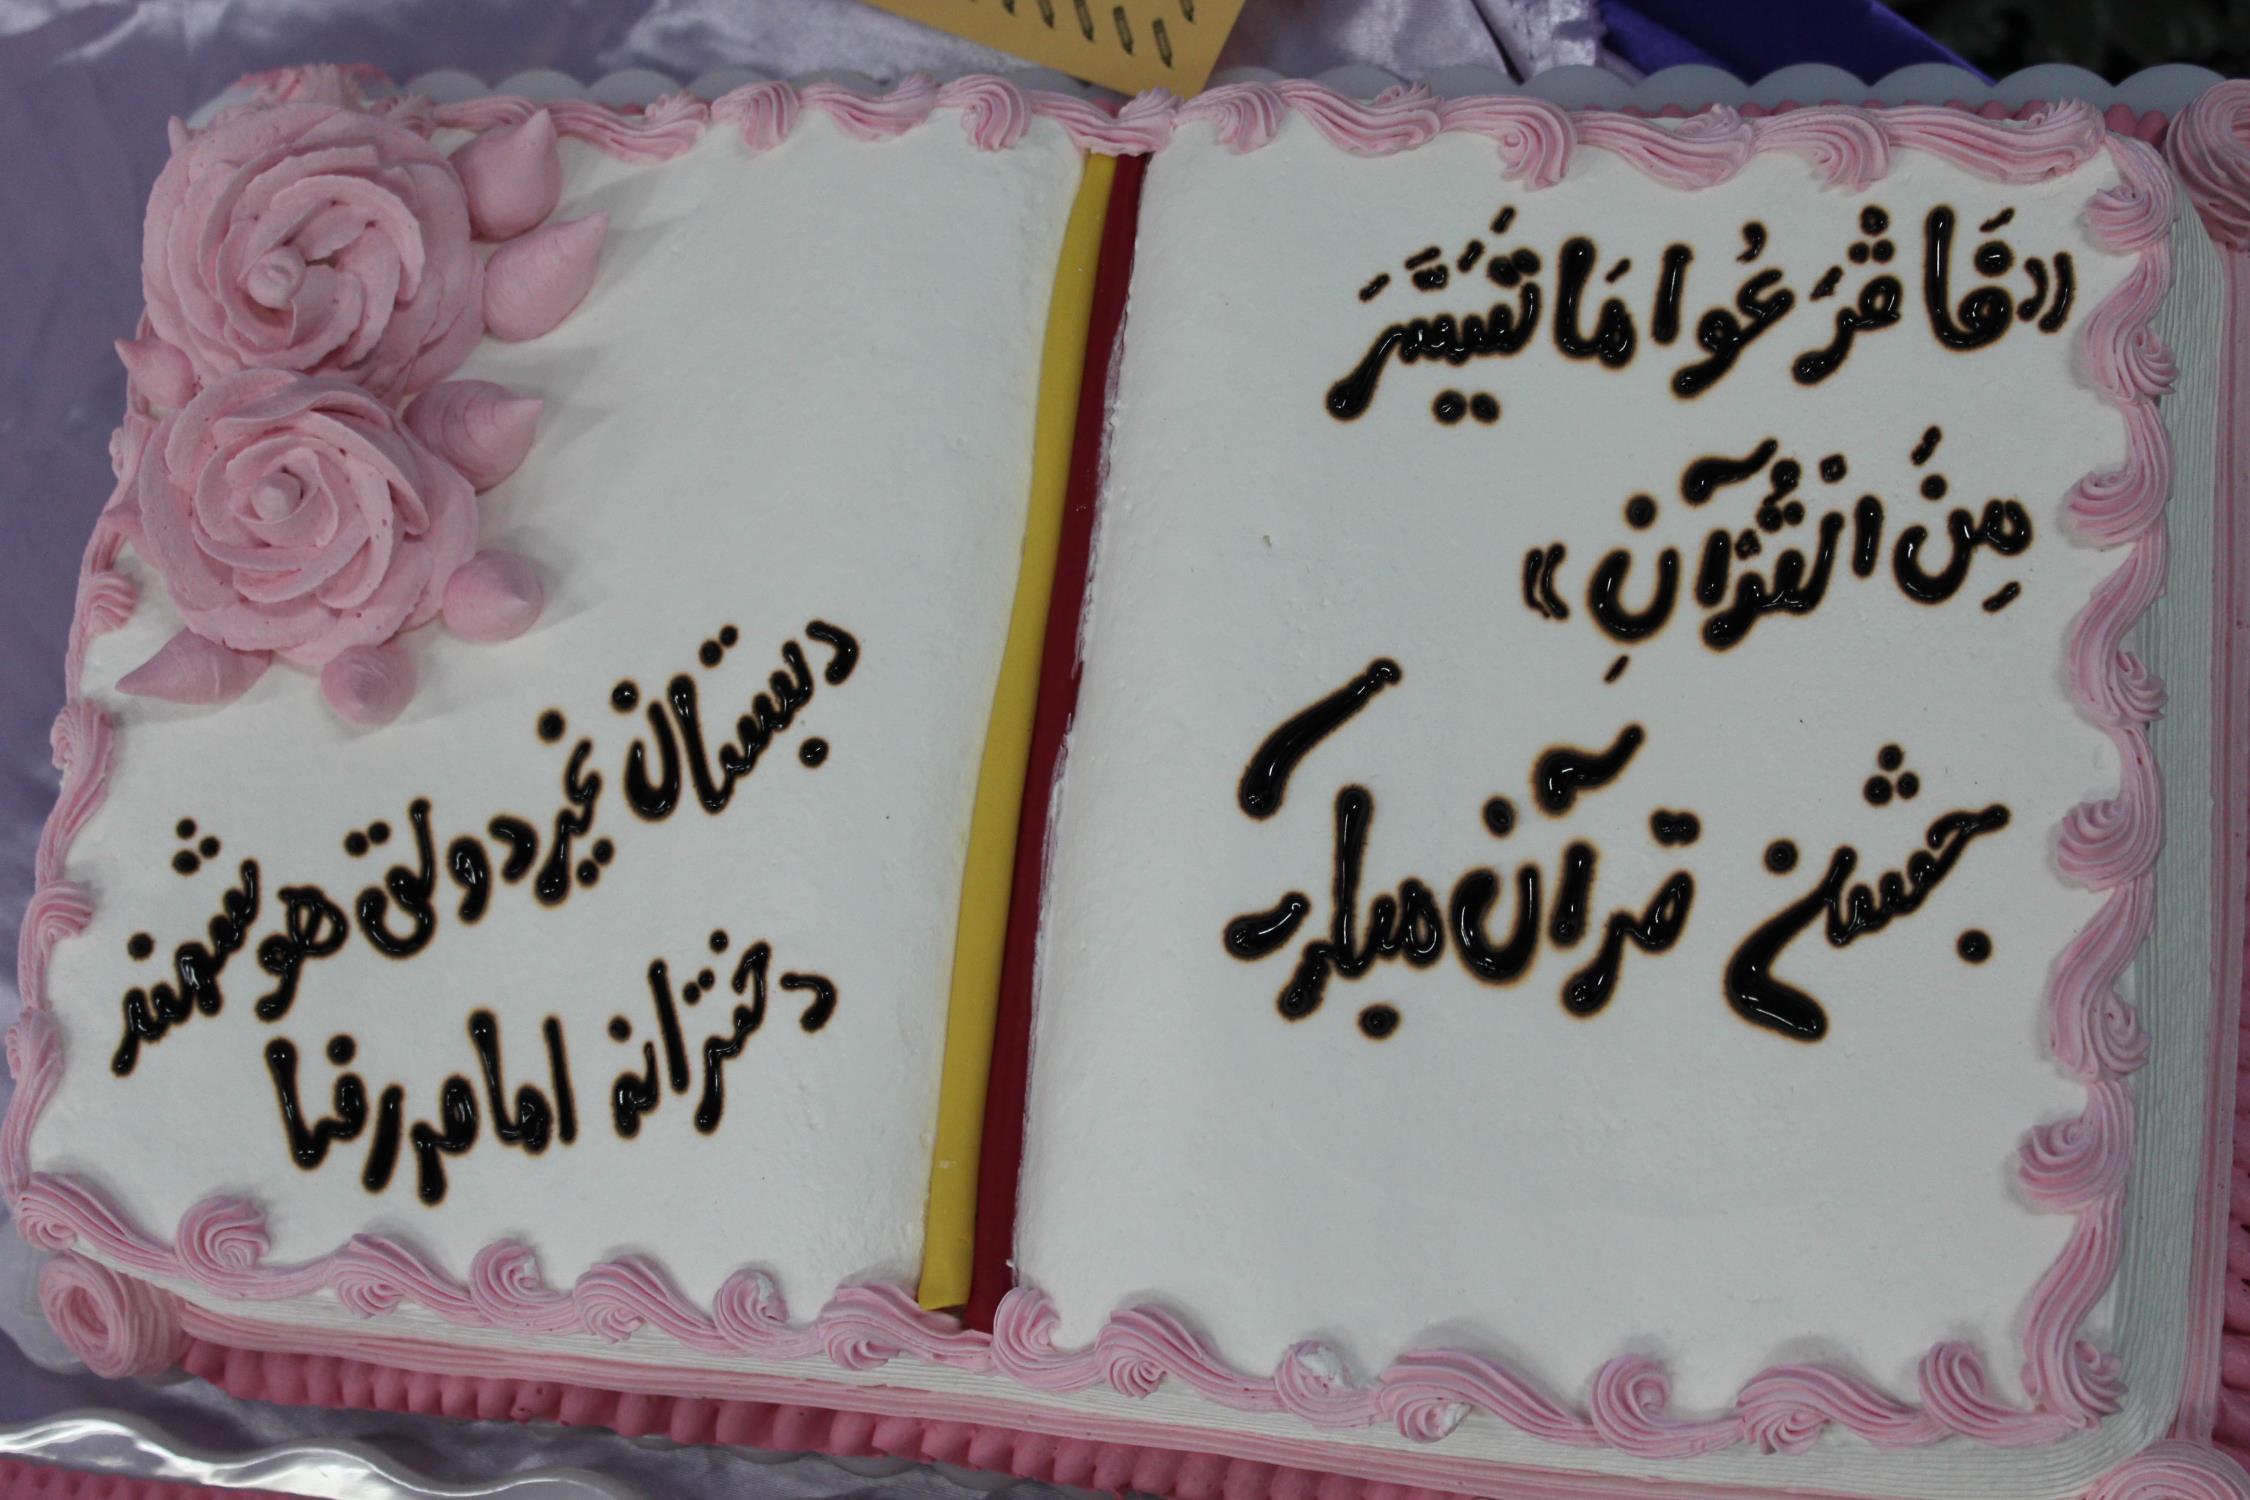 «فَاقْرَءُوا مَا تَیَسَّرَ
مِنَ الْقُرْآنِ»
جشن قرآن مبارک
دبستان غیر دولتی هوشمند
دخترانه امام رضا